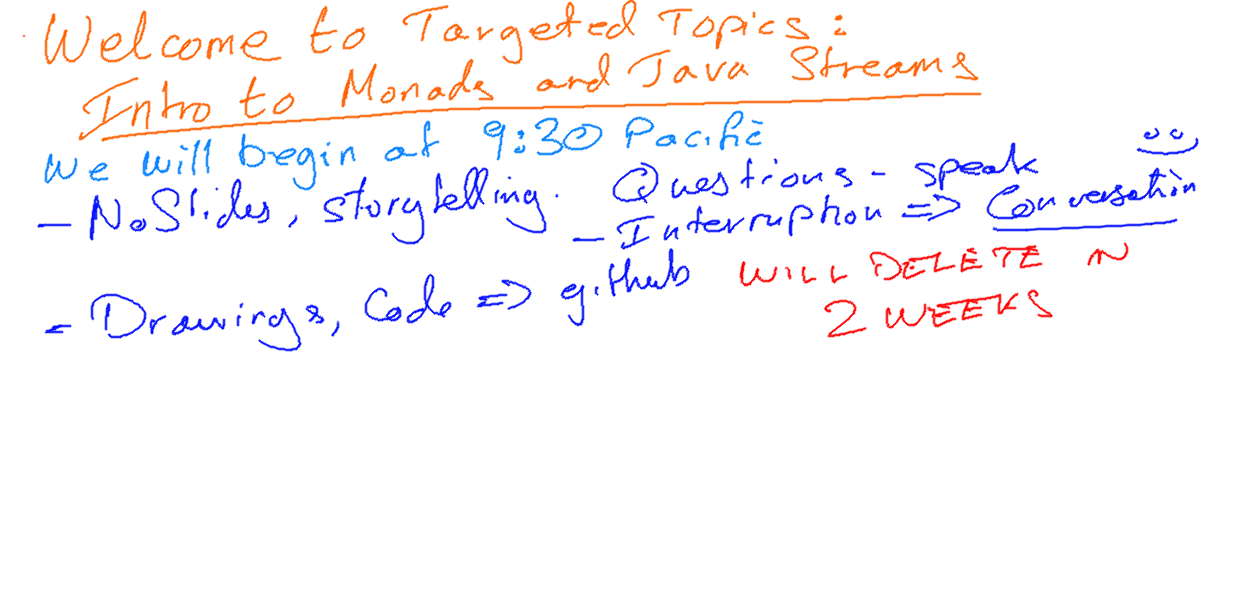 Welcome to Targeted Topics:
Intro to Monads and Java Streams
We will begin at 9:30 Pacific
- No Slides, storytelling. Questions - speak
- Interruption => Conversation
- Drawings, Code => github
WILL DELETE IN
2 WEEKS